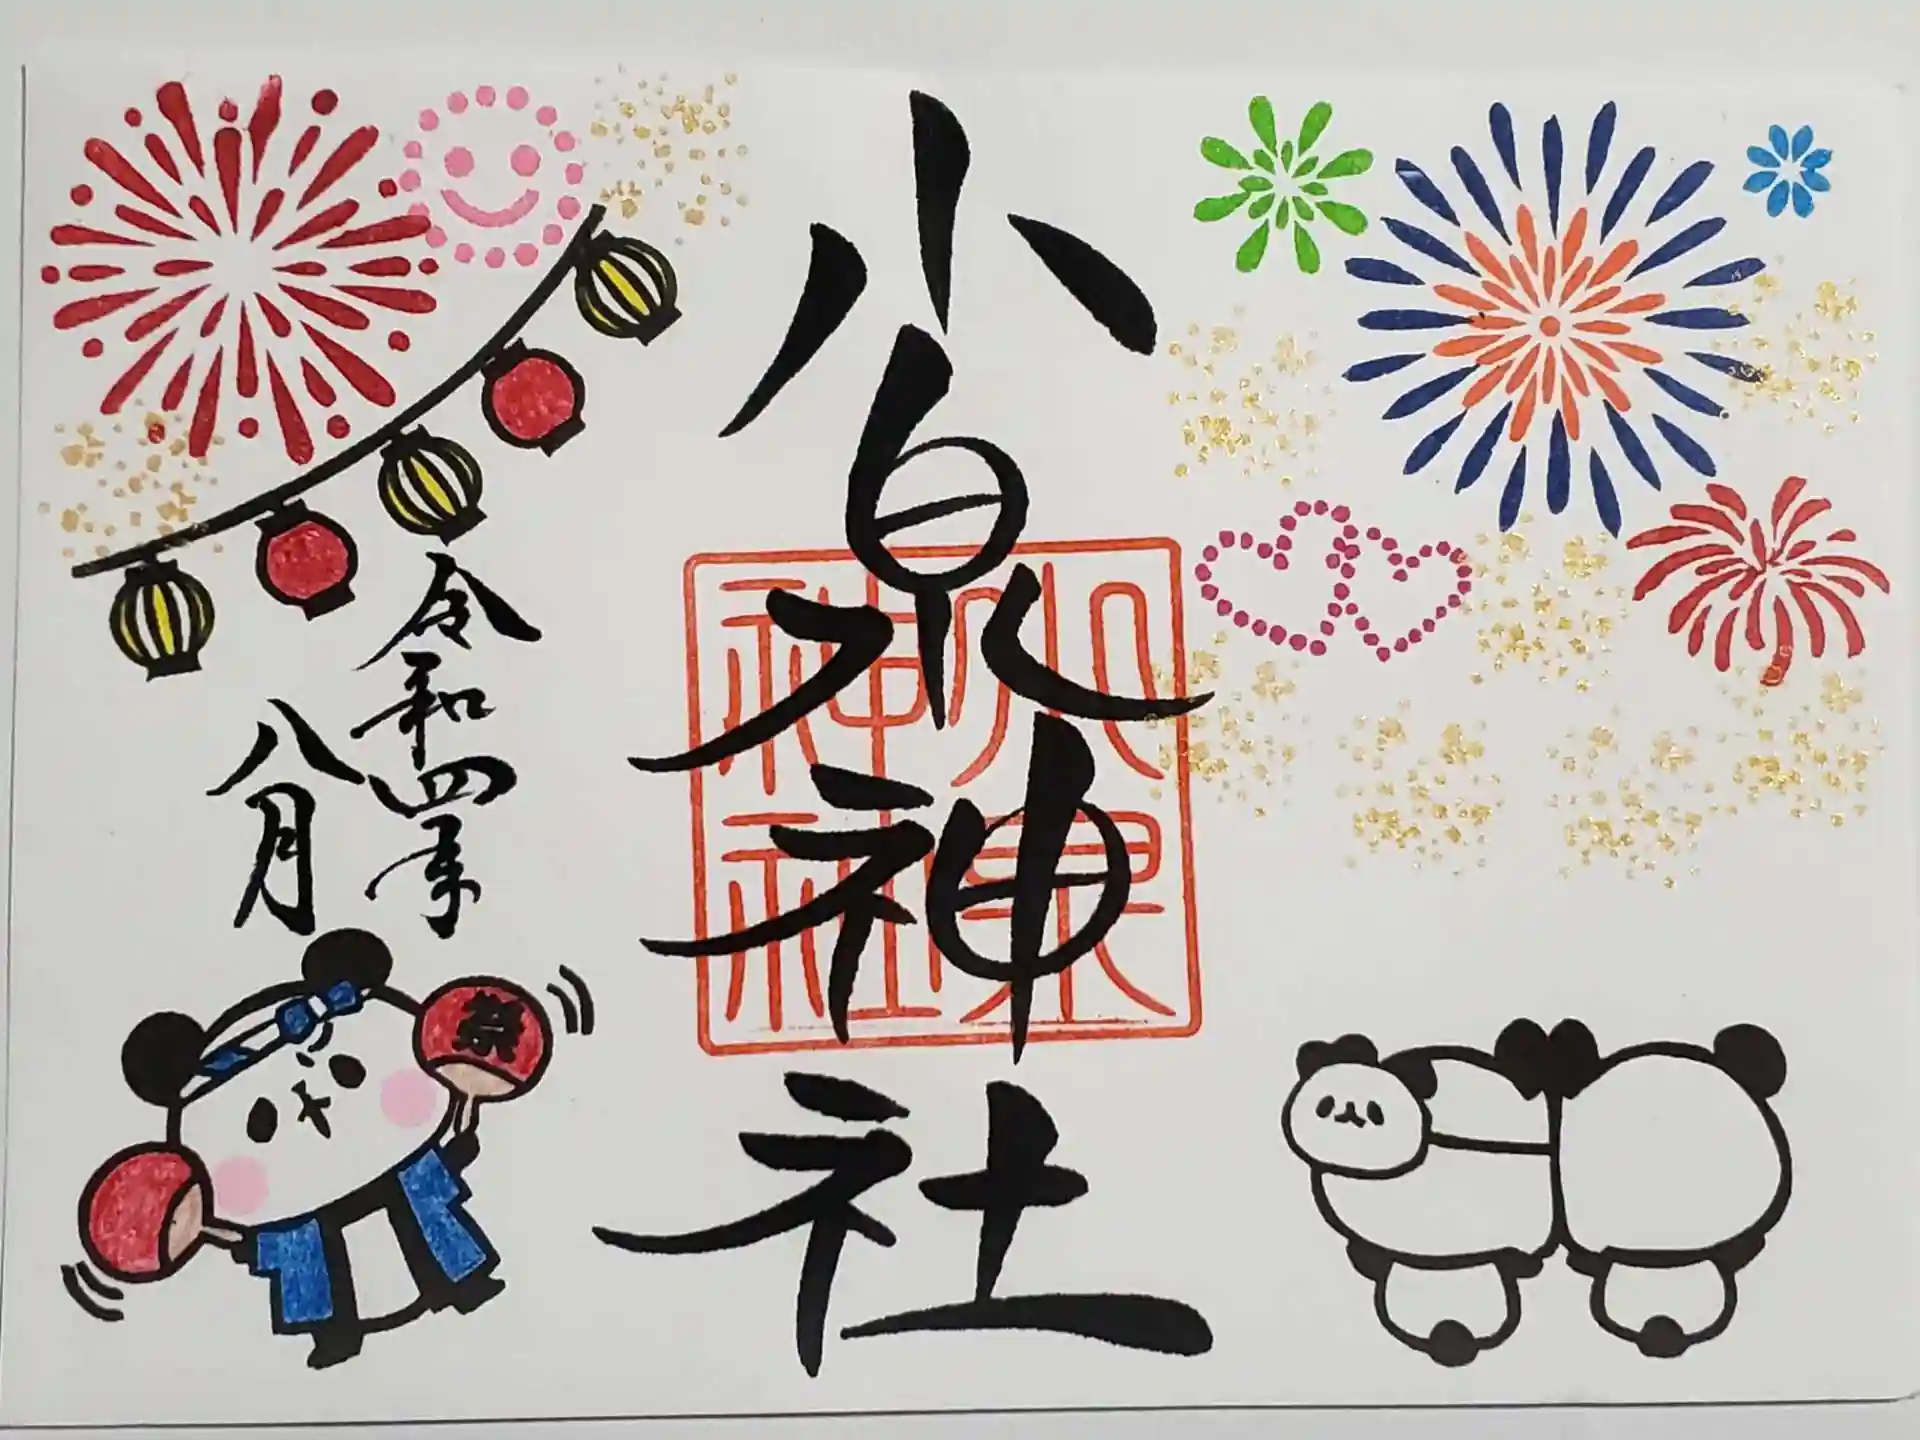 小泉神社
小泉
神社
令和四年
八月
祭